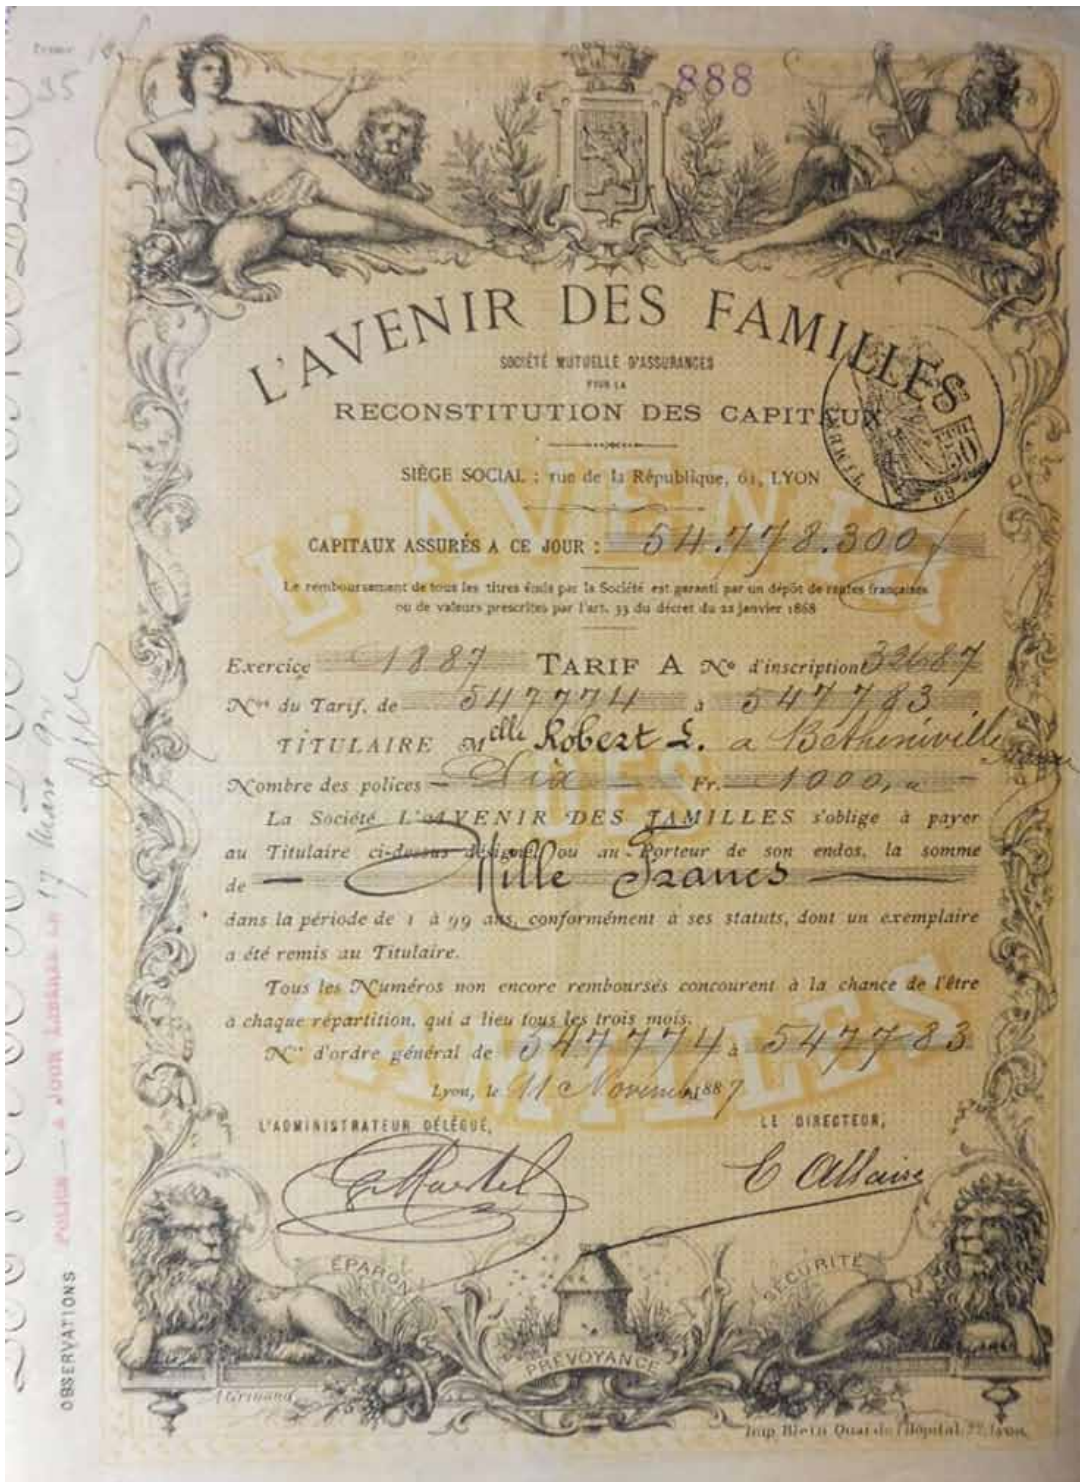 35
888
L'AVENIR DES FAMILLES
SOCIÉTÉ MUTUELLE D'ASSURANCES
POUR LA
RECONSTITUTION DES CAPITAUX
50
SIÈGE SOCIAL : rue de la République, 61, LYON
CAPITAUX ASSURÉS A CE JOUR : 54.778.300
Le remboursement de tous les titres émis par la Société est garanti par un dépôt de rentes françaises
ou de valeurs prescrites par l'art. 33 du décret du 22 janvier 1868
L'AVENIR
DES
FAMILLES
Exercice 1887 TARIF A No d'inscription 32687
Nos du Tarif, de 547774 à 547783
TITULAIRE Melle Robert L. a Betheniville
Nombre des polices — Dix — Fr. — 1000,
La Société L'AVENIR DES FAMILLES s'oblige à payer
au Titulaire ci-dessus désigné, ou au Porteur de son endos, la somme
de — Mille Francs —
dans la période de 1 à 99 ans, conformément à ses statuts, dont un exemplaire
a été remis au Titulaire.
Tous les Numéros non encore remboursés concourent à la chance de l'être
à chaque répartition, qui a lieu tous les trois mois.
Nos d'ordre général de 547774 à 547783
Lyon, le 11 Novembre 1887
L'ADMINISTRATEUR DÉLÉGUÉ,
LE DIRECTEUR,
C Allaire
ÉPARGNE
SÉCURITÉ
PRÉVOYANCE
Imp. Quai de l'Hôpital, Lyon
OBSERVATIONS
POLICE — A JOUR LIBÉRÉE LE 17 Mars